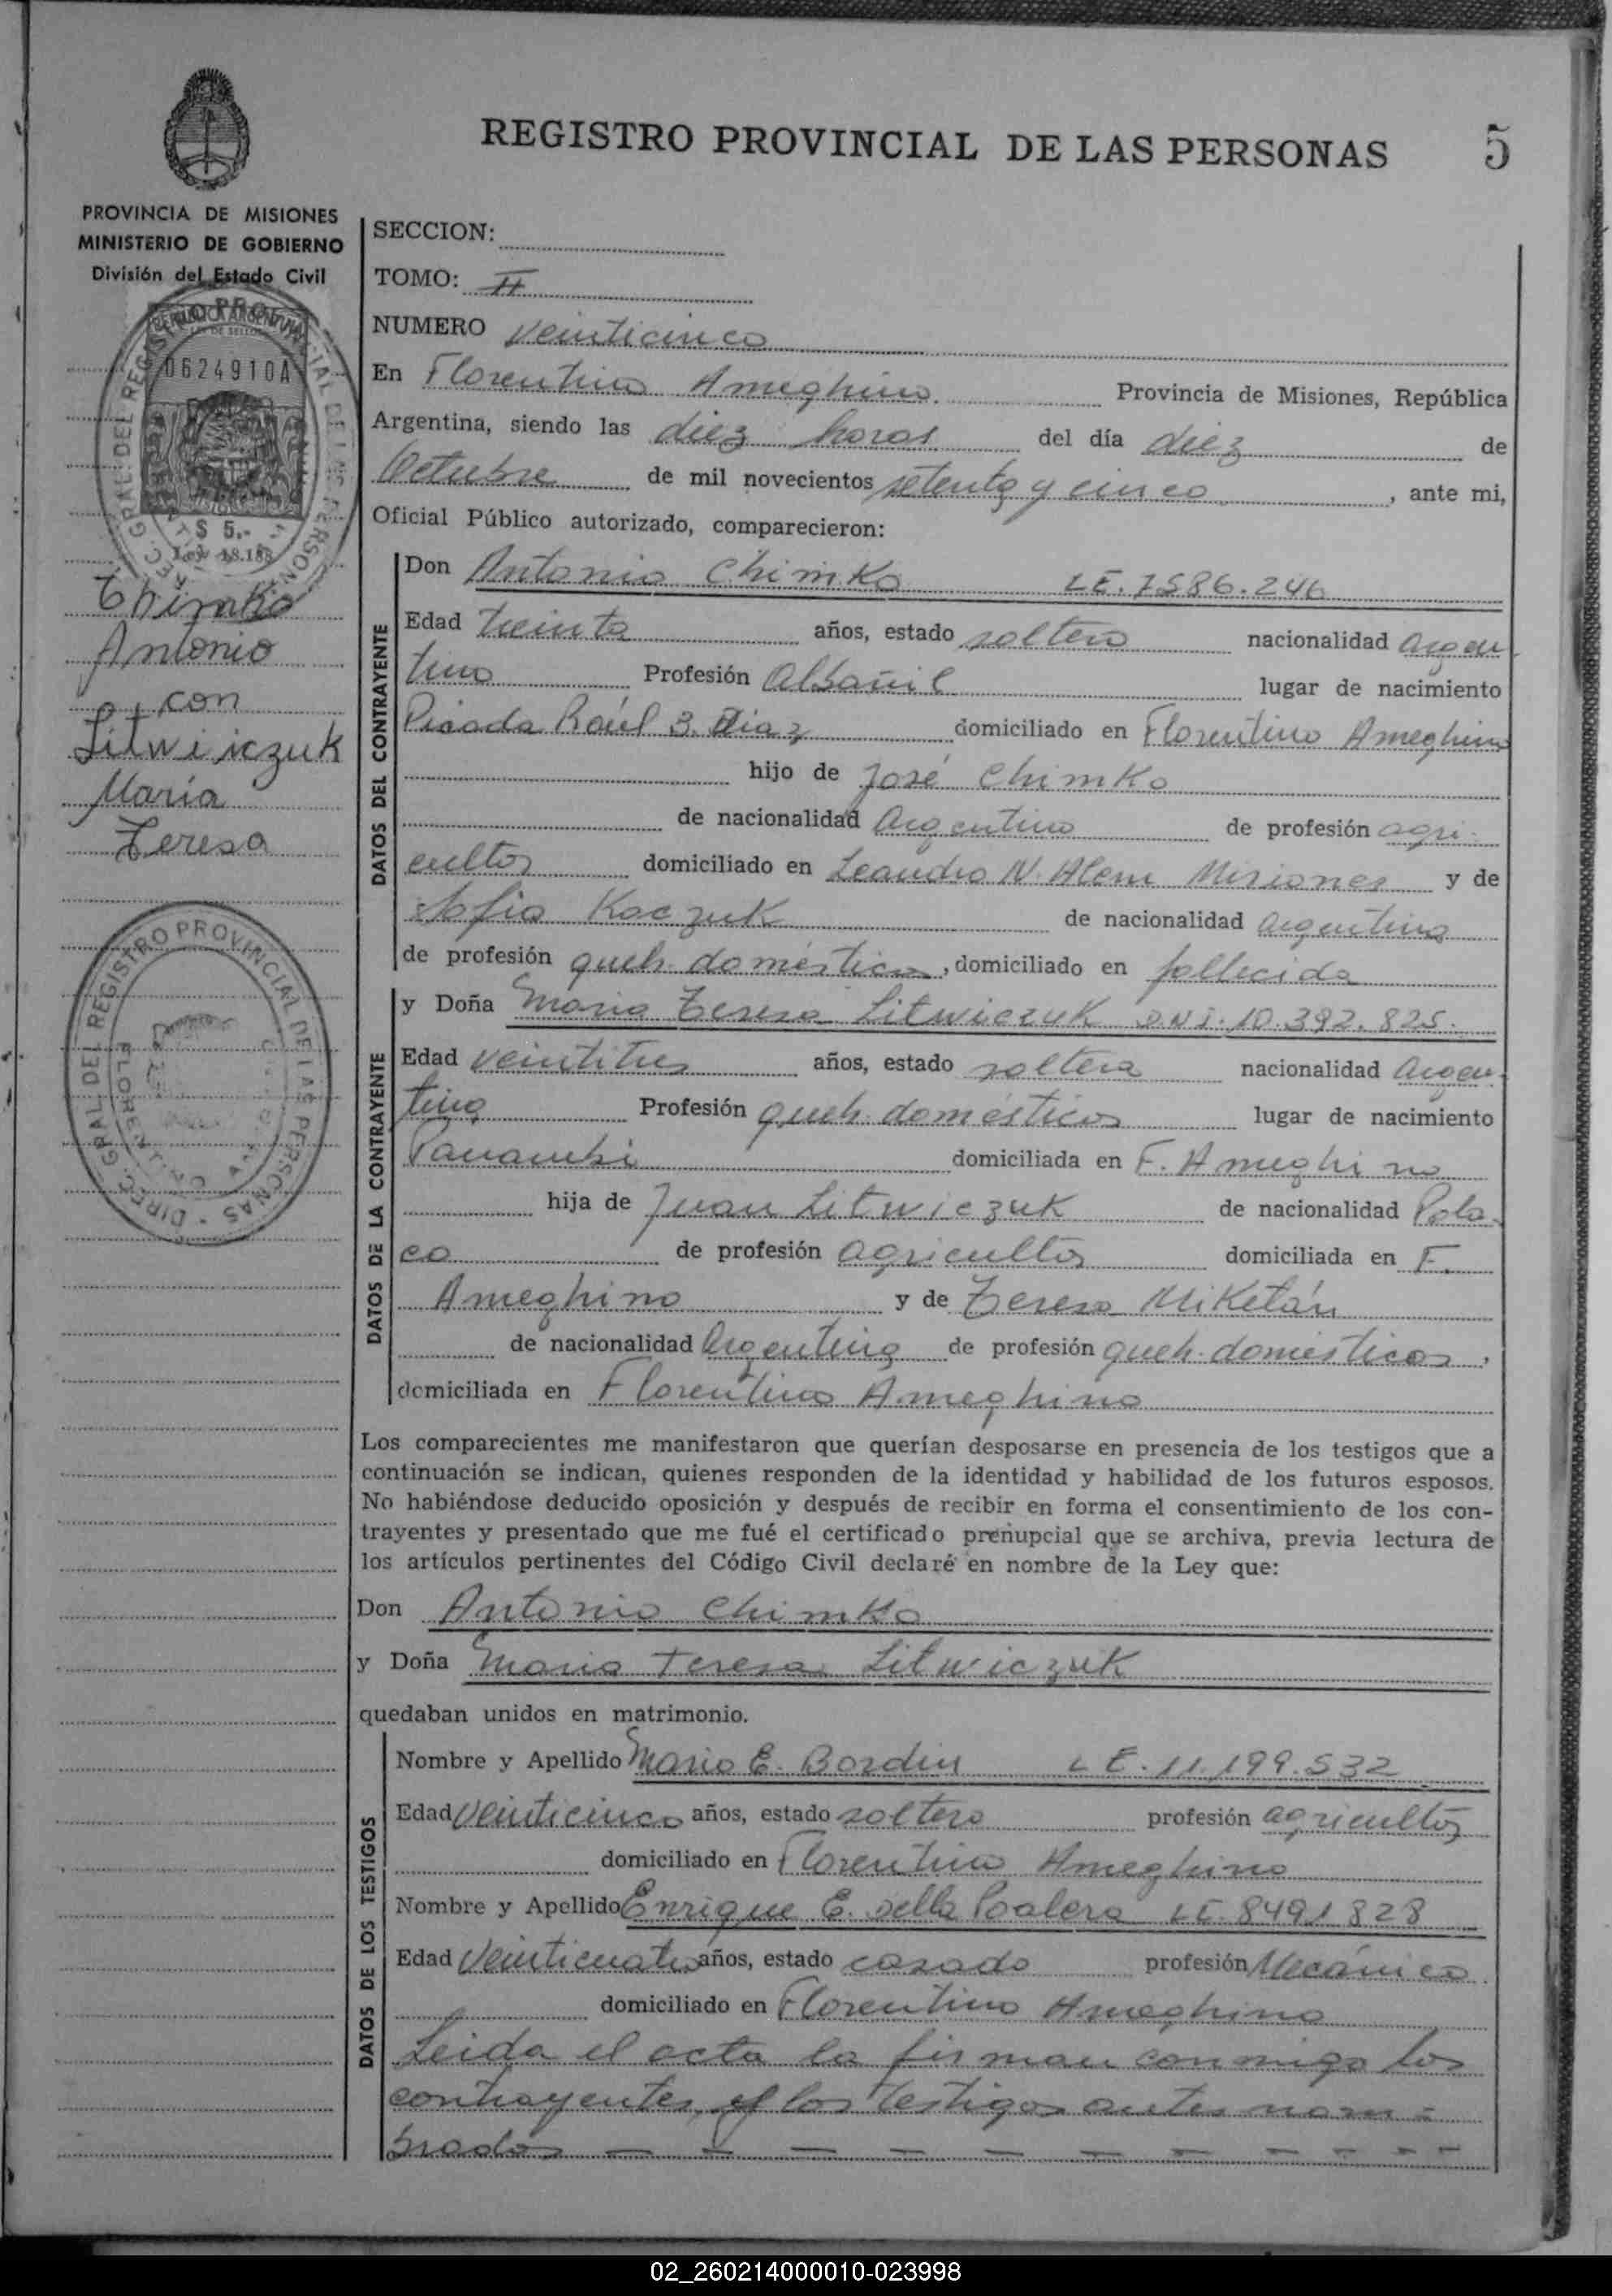 REGISTRO PROVINCIAL DE LAS PERSONAS 5
PROVINCIA DE MISIONES
MINISTERIO DE GOBIERNO
División del Estado Civil
REPUBLICA ARGENTINA
LEY DE SELLOS
0624910A
$ 5.-
Ley 18.188
DIREC. GRAL. DEL REGISTRO PROVINCIAL DE LAS PERSONAS
Chimko
Antonio
con
Litwiiczuk
María
Teresa
DIREC. GRAL. DEL REGISTRO PROVINCIAL DE LAS PERSONAS
SECCION:
TOMO: II
NUMERO veinticinco
En Florentino Ameghino. Provincia de Misiones, República
Argentina, siendo las diez horas del día diez de
Octubre de mil novecientos setenta y cinco, ante mi,
Oficial Público autorizado, comparecieron:
DATOS DEL CONTRAYENTE
Don Antonio Chimko LE. 7586.246
Edad treinta años, estado soltero nacionalidad Argen
tino Profesión Albañil lugar de nacimiento
Picada Raúl B. Diaz domiciliado en Florentino Ameghino
hijo de José Chimko
de nacionalidad Argentino de profesión agri-
cultor domiciliado en Leandro N. Alem Misiones y de
Sofia Koczuk de nacionalidad Argentina
de profesión queh. domésticos, domiciliado en fallecida
DATOS DE LA CONTRAYENTE
y Doña Maria Teresa Litwiczuk D.N.I. 10.392.825.
Edad veintitres años, estado soltera nacionalidad Argen-
tina Profesión queh. domésticos lugar de nacimiento
Panambi domiciliada en F. Ameghino
hija de Juan Litwiczuk de nacionalidad Pola-
co de profesión agricultor domiciliada en F.
Ameghino y de Teresa Miketán
de nacionalidad Argentina de profesión queh. domésticos,
domiciliada en Florentino Ameghino
Los comparecientes me manifestaron que querían desposarse en presencia de los testigos que a
continuación se indican, quienes responden de la identidad y habilidad de los futuros esposos.
No habiéndose deducido oposición y después de recibir en forma el consentimiento de los con-
trayentes y presentado que me fué el certificado prenupcial que se archiva, previa lectura de
los artículos pertinentes del Código Civil declaré en nombre de la Ley que:
Don Antonio Chimko
y Doña Maria Teresa Litwiczuk
quedaban unidos en matrimonio.
DATOS DE LOS TESTIGOS
Nombre y Apellido Mario E. Bordin LE. 11.199.532
Edad veinticinco años, estado soltero profesión agricultor
domiciliado en Florentino Ameghino
Nombre y Apellido Enrique E. Della Boalera LE. 8491828
Edad Veinticuatro años, estado casado profesión Mecánico
domiciliado en Florentino Ameghino
Leida el acta la firman conmigo los
contrayentes y los testigos antes nom-
brados
02_260214000010-023998